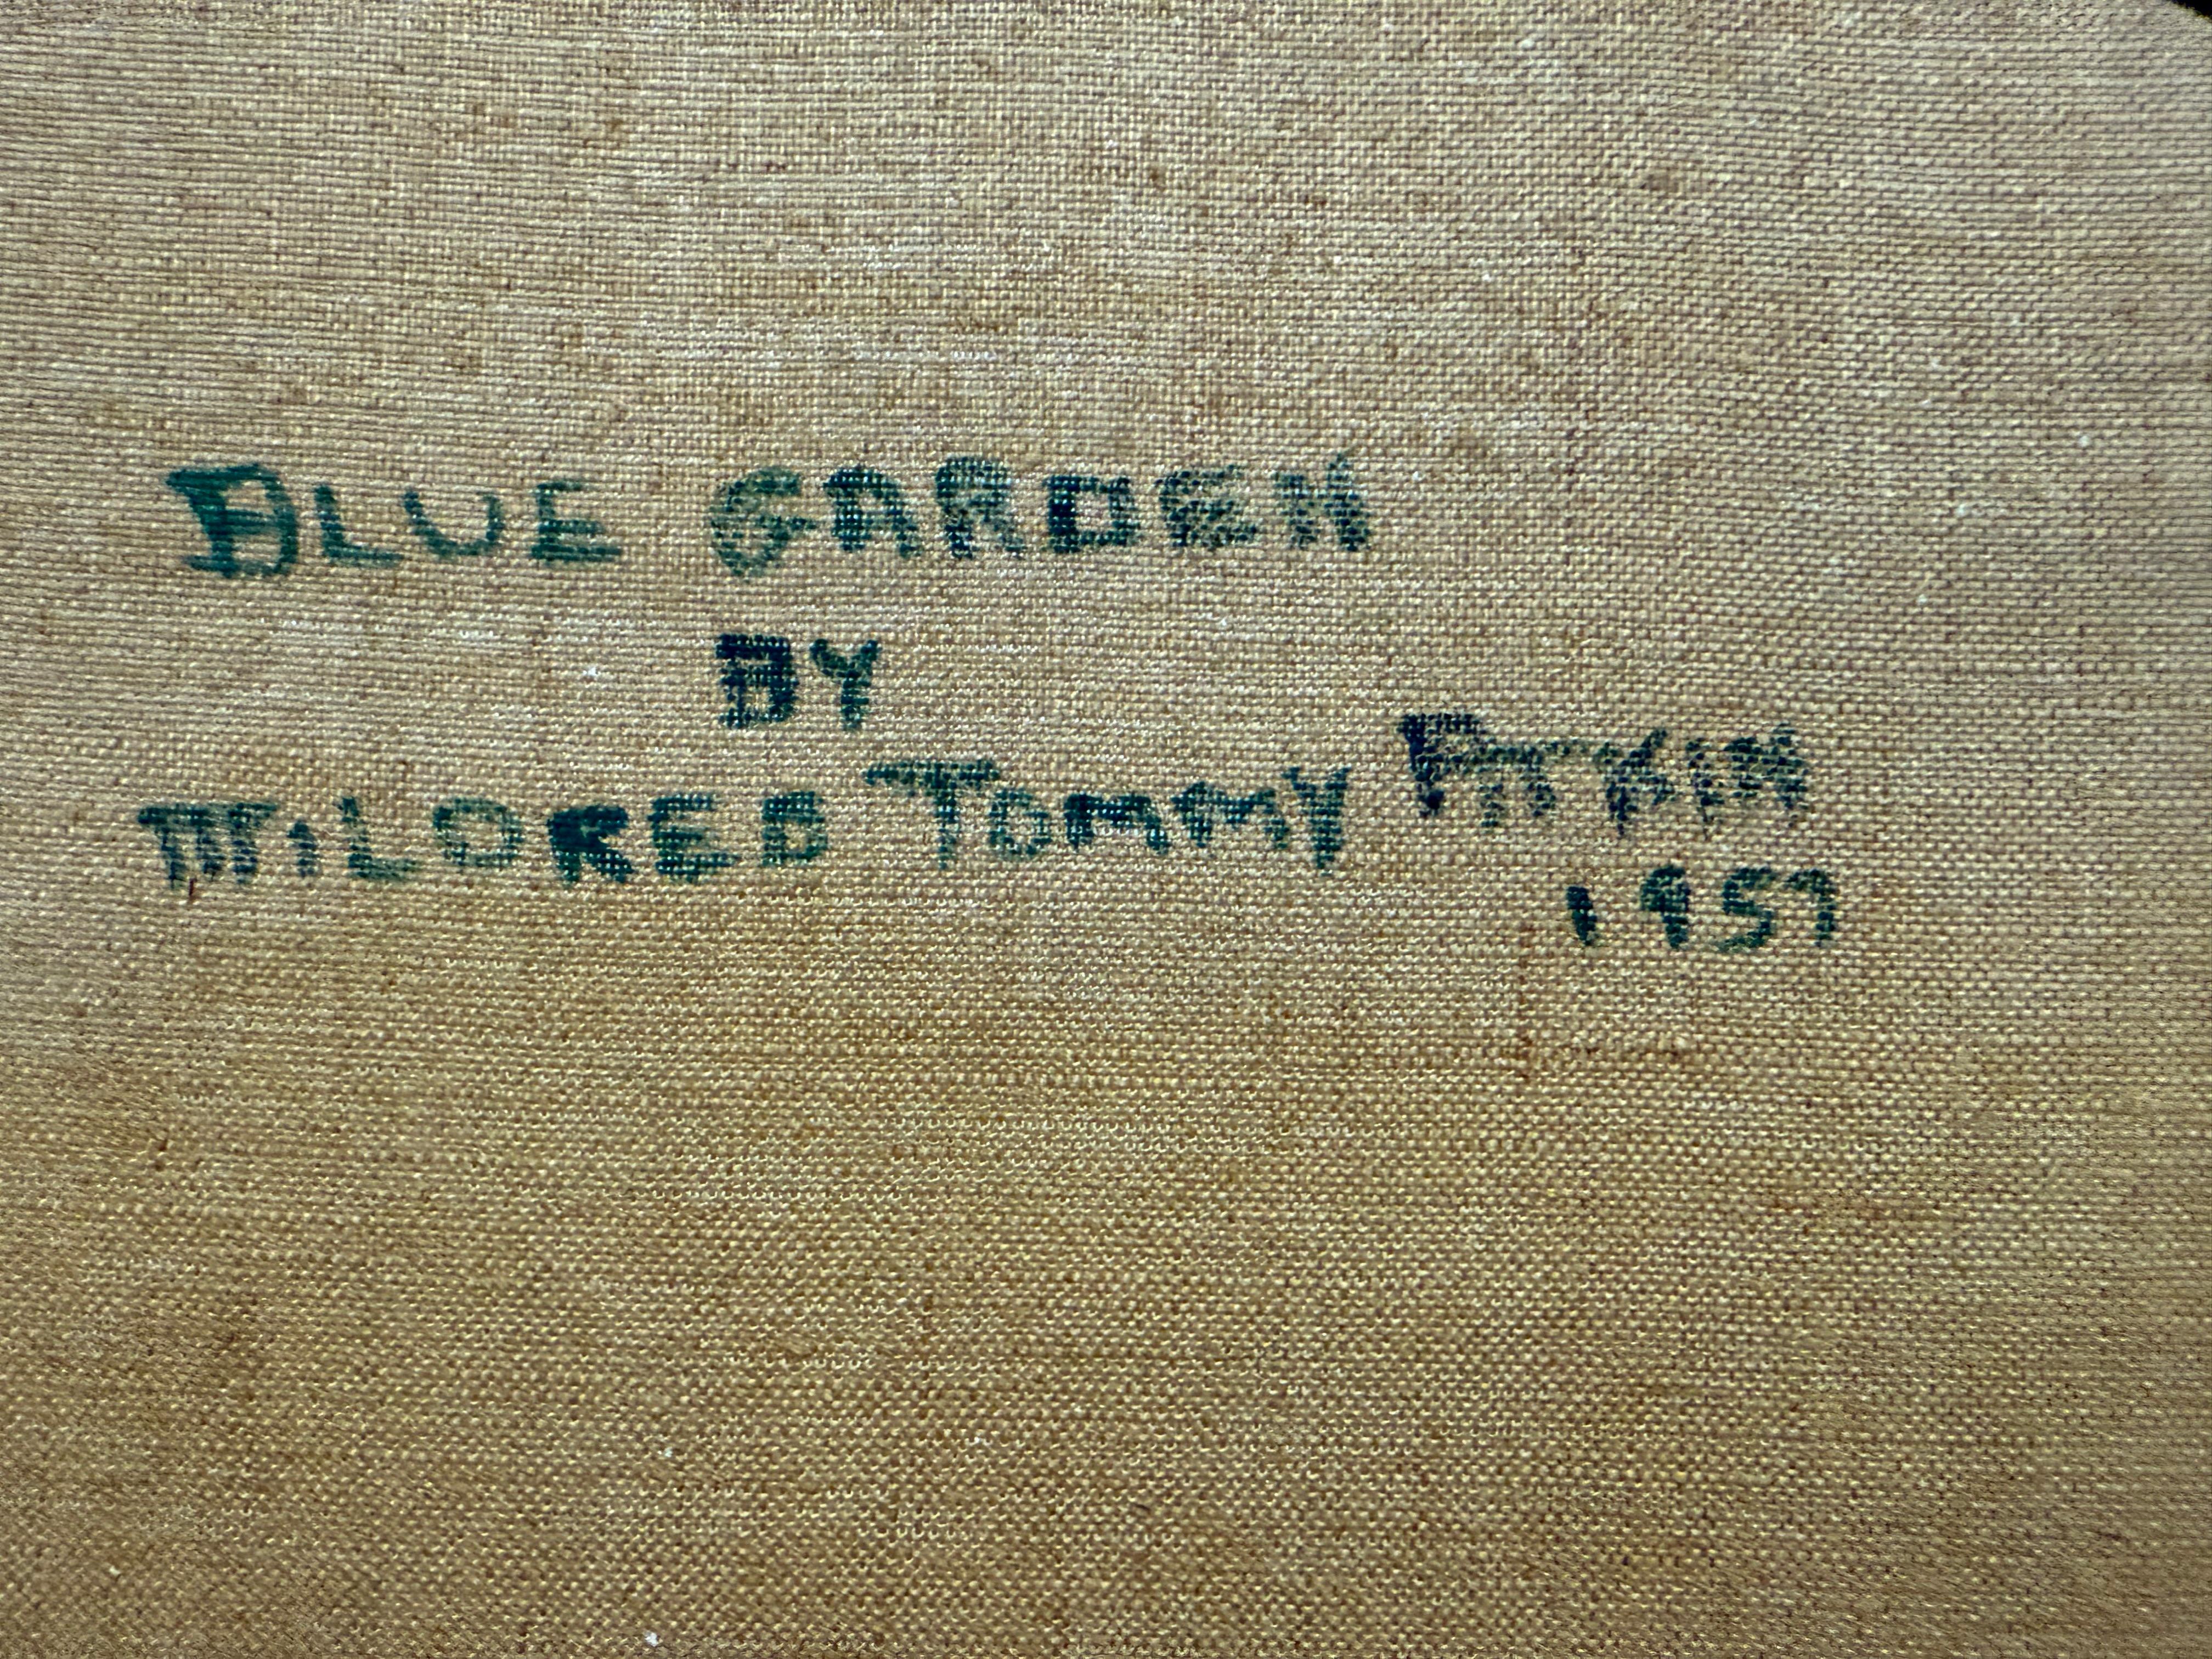 BLUE GARDEN
BY
MILDRED TOMMY PITKIN
1957